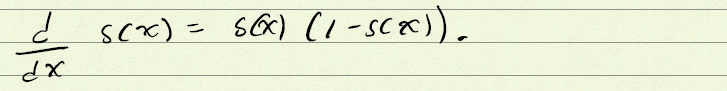 d/dx s(x) = s(x) (1-s(x)).